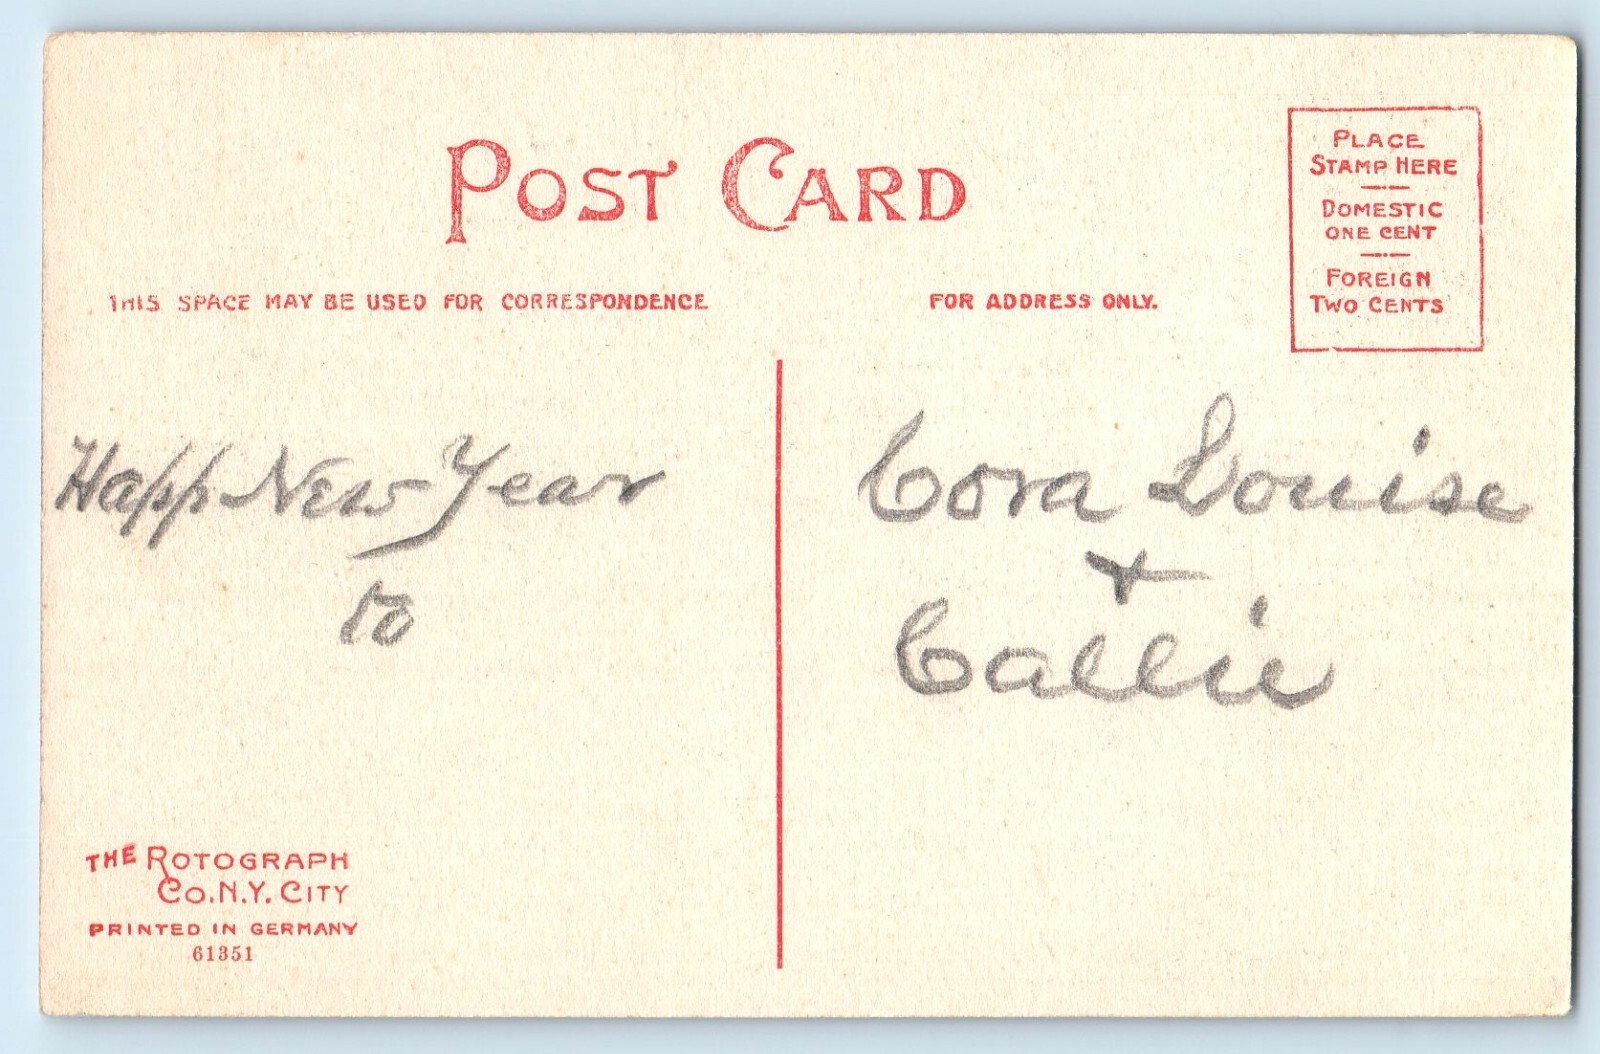 POST CARD
PLACE
STAMP HERE
DOMESTIC
ONE CENT
FOREIGN
TWO CENTS
THIS SPACE MAY BE USED FOR CORRESPONDENCE
FOR ADDRESS ONLY.
Happ New Year
to
Cora Louise
+
Callie
THE ROTOGRAPH
CO. N.Y. CITY
PRINTED IN GERMANY
61351